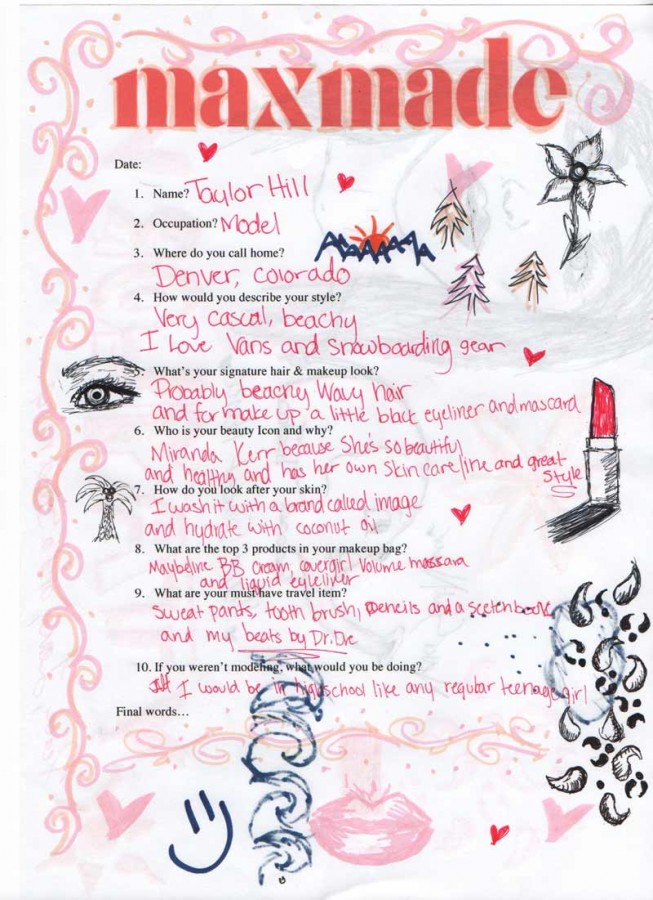 maxmade
Date:
1. Name? Taylor Hill
2. Occupation? Model
3. Where do you call home?
Denver, Colorado
4. How would you describe your style?
Very casual, beachy
I Love Vans and snowboarding gear
5. What's your signature hair & makeup look?
Probably beachy Wavy hair
and for make up a little black eyeliner and mascara
6. Who is your beauty Icon and why?
Miranda Kerr because She's so beautiful
and healthy and has her own Skin care line and great
Style
7. How do you look after your skin?
I wash it with a brand called image
and hydrate with coconut oil
8. What are the top 3 products in your makeup bag?
Maybeline BB Cream, covergirl Volume mascara
and liquid eyeliner
9. What are your must have travel item?
Sweat pants, tooth brush, pencils and a scetchbook
and my beats by Dr. Dre
10. If you weren't modeling, what would you be doing?
I would be in highschool like any regular teenage girl
Final words…